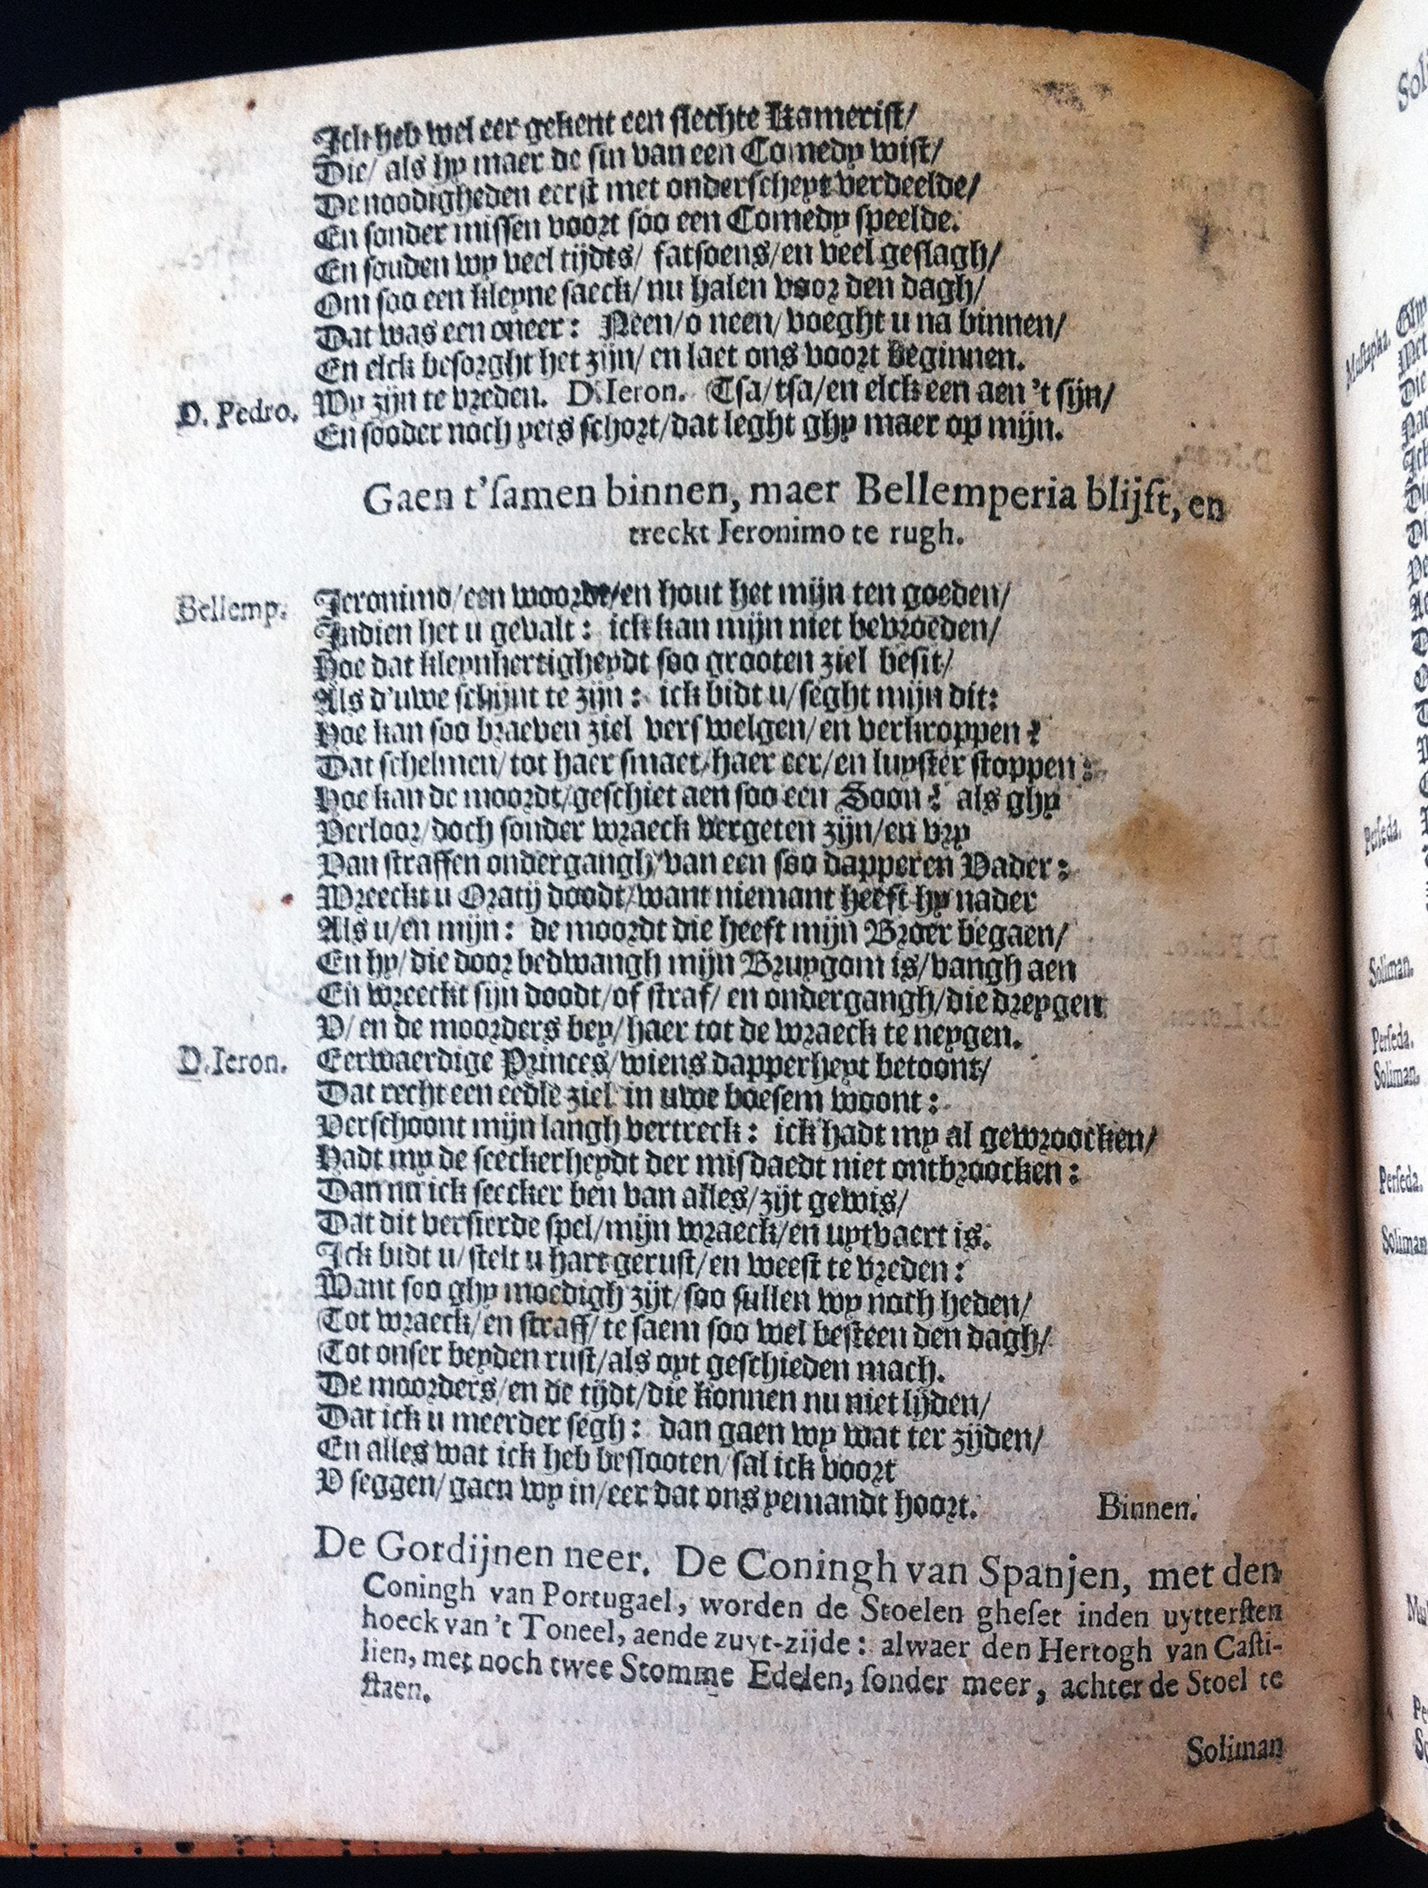 Ick heb wel eer gekent een slechte Kamerist/
Die/ als hy maer de sin van een Comedy wist/
De noodigheden eerst met onderscheyt verdeelde/
En sonder missen voort soo een Comedy speelde.
En souden wy veel tijdts/ fatsoens/en veel geslagh/
Om soo een kleyne saeck/nu halen voor den dagh/
Dat was een oneer: Neen/o neen/voeght u na binnen/
En elck besorght het zijn/en laet ons voort beginnen.
D. Pedro. Wy zijn te vreden. D.Ieron. Tsa/tsa/en elck een aen 't sijn/
En sooder noch yets schort/dat leght ghy maer op mijn.
Gaen t'samen binnen, maer Bellemperia blijft, en
treckt Ieronimo te rugh.
Bellemp. Jeronimo/een woordt/en hout het mijn ten goeden/
Indien het u gevalt: ick kan mijn niet bevroeden/
Hoe dat kleynhertigheydt soo grooten ziel besit/
Als d'uwe schijnt te zijn: ick bidt u/seght mijn dit:
Hoe kan soo braeven ziel verswelgen/en verkroppen?
Dat schelmen/tot haer smaet/haer eer/en luyster stoppen:
Hoe kan de moordt/geschiet aen soo een Soon? als ghy
Verloor/doch sonder wraeck vergeten zijn/en vry
Van straffen ondergangh/van een soo dapperen Vader:
Wreeckt u Oratij doodt/want niemant heeft hy nader
Als u/en mijn: de moordt die heeft mijn Broer begaen/
En hy/die door bedwangh mijn Bruygom is/vangh aen
En wreeckt sijn doodt/of straf/en ondergangh/die dreygen
V/en de moorders bey/haer tot de wraeck te neygen.
D.Ieron. Eerwaerdige Princes/wiens dapperheyt betoont/
Dat recht een eedle ziel in uwe boesem woont:
Verschoont mijn langh vertreck: ick hadt my al gewroocken/
Hadt my de seeckerheydt der misdaedt niet ontbroocken:
Dan nu ick seecker ben van alles/zijt gewis/
Dat dit versierde spel/mijn wraeck/en uytvaert is.
Ick bidt u/stelt u hart gerust/en weest te vreden:
Want soo ghy moedigh zijt/soo sullen wy noch heden/
Tot wraeck/en straff/te saem soo wel besteen den dagh/
Tot onser beyden rust/als oyt geschieden mach.
De moorders/en de tijdt/die konnen nu niet lijden/
Dat ick u meerder segh: dan gaen wy wat ter zijden/
En alles wat ick heb beslooten/sal ick voort
V seggen/gaen wy in/eer dat ons yemandt hoort. Binnen.
De Gordijnen neer. De Coningh van Spanjen, met den
Coningh van Portugael, worden de Stoelen gheset inden uyttersten
hoeck van 't Toneel, aende zuyt-zijde: alwaer den Hertogh van Casti-
lien, met noch twee Stomme Edelen, sonder meer, achter de Stoel te
staen.
Soliman